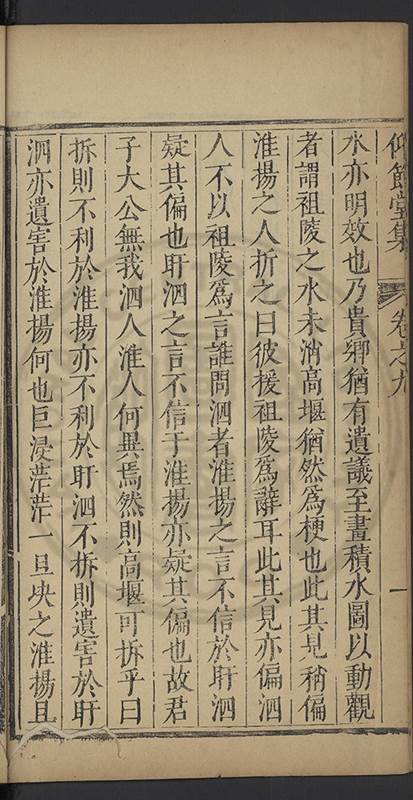 仰節堂集 卷之九 一
水亦明效也乃貴鄉猶有遺議至畫積水圖以動觀
者謂祖陵之水未消高堰猶然為梗也此其見稍偏
淮揚之人折之曰彼援祖陵為辭耳此其見亦偏泗
人不以祖陵為言誰問泗者淮揚之言不信於盱泗
疑其偏也盱泗之言不信于淮揚亦疑其偏也故君
子大公無我泗人淮人何異焉然則高堰可拆乎曰
拆則不利於淮揚亦不利於盱泗不拆則遺害於盱
泗亦遺害於淮揚何也巨浸茫茫一旦決之淮揚且